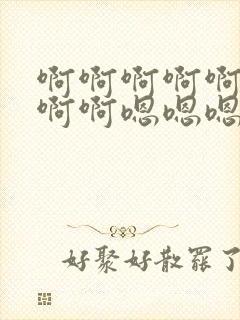 啊啊啊啊啊
啊啊嗯嗯嗯
好聚好散罢了